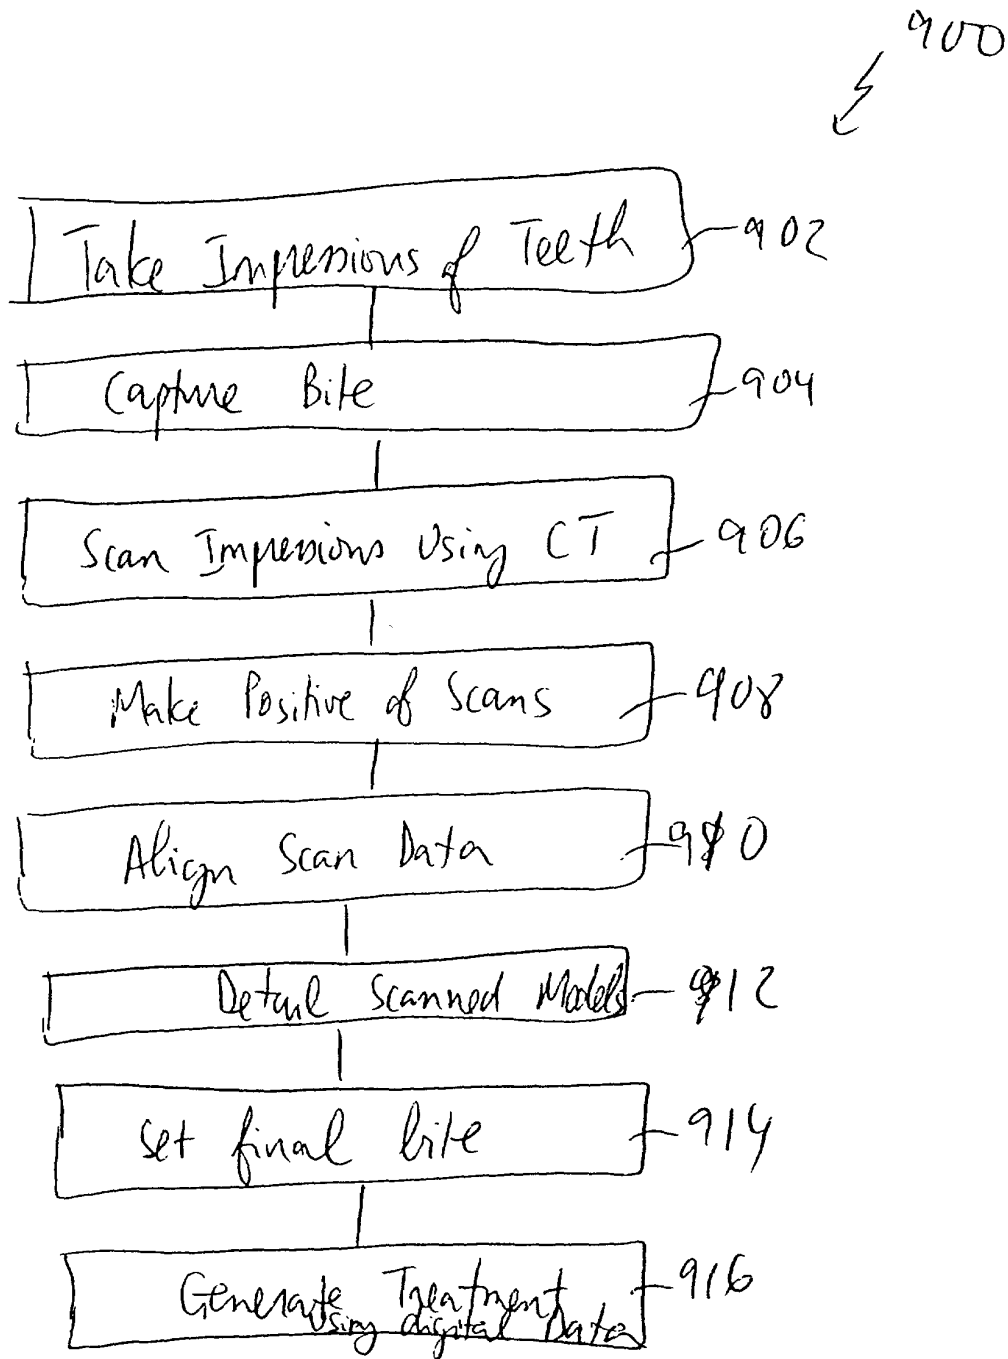 900
Take Impressions of Teeth 902
Capture Bite 904
Scan Impressions Using CT 906
Make Positive of Scans 908
Align Scan Data 910
Detail Scanned Models 912
Set final bite 914
Generate Treatment 916
Using digital Data